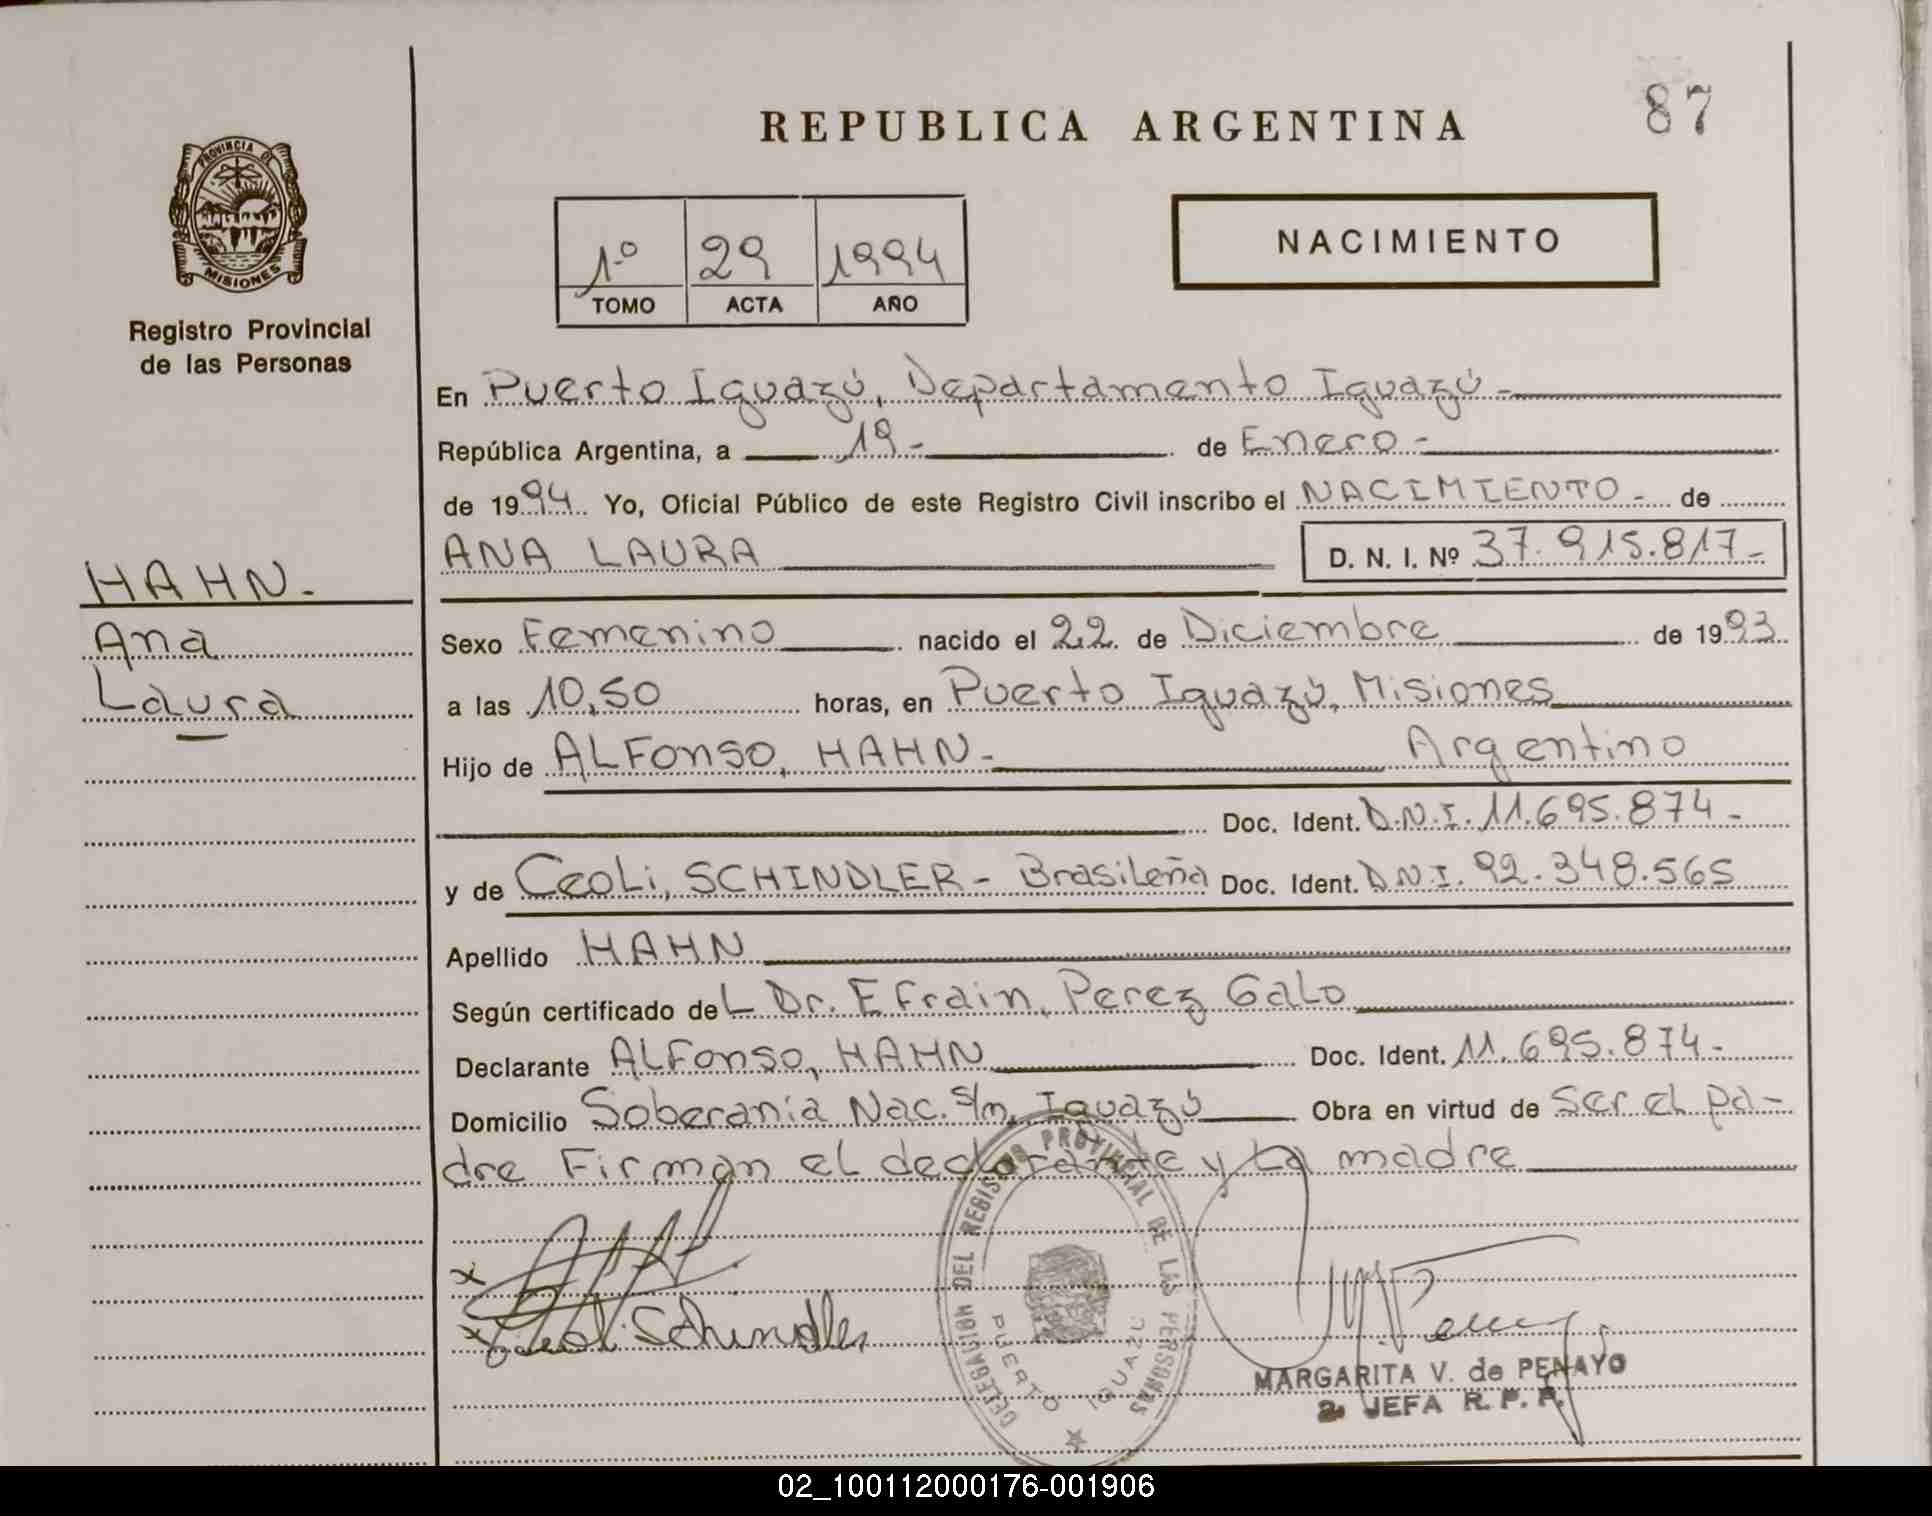 REPUBLICA ARGENTINA
87
PROVINCIA DE
MISIONES
Registro Provincial
de las Personas
1º 29 1994
TOMO ACTA AÑO
NACIMIENTO
En Puerto Iguazú, Departamento Iguazú-
República Argentina, a 19- de Enero-
de 1994. Yo, Oficial Público de este Registro Civil inscribo el NACIMIENTO- de
ANA LAURA D. N. I. Nº 37.915.817-
HAHN.-
Ana
Laura
Sexo Femenino nacido el 22 de Diciembre de 1993
a las 10,50 horas, en Puerto Iguazú, Misiones
Hijo de ALFonso, HAHN- Argentino
Doc. Ident. D.N.I. 11.695.874-
y de CeoLi, SCHINDLER- BrasiLeña Doc. Ident. D.N.I. 92.348.565
Apellido HAHN
Según certificado deL Dr. EFrain, Perez GaLo
Declarante ALFonso, HAHN Doc. Ident. 11.695.874-
Domicilio Soberanía Nac. S/n, Iguazú Obra en virtud de Ser eL pa-
dre Firman eL declarante y La madre
x
x Ceoli Schindler
DELEGACION DEL REGISTRO PROVINCIAL DE LAS PERSONAS
PUERTO IGUAZU
MARGARITA V. de PENAYO
2- JEFA R. P. P.
02_100112000176-001906